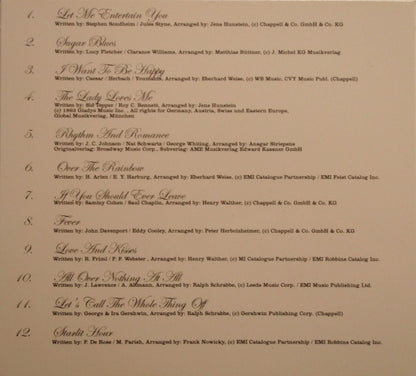 1. Let Me Entertain You
Written by: Stephen Sondheim / Jules Styne, Arranged by: Jens Hunstein, (c) Chappell & Co. GmbH & Co. KG
2. Sugar Blues
Written by: Lucy Fletcher / Clarance Williams, Arranged by: Matthias Büttner, (c) J. Michel KG Musikverlag
3. I Want To Be Happy
Written by: Caesar / Herbach / Youmanns, Arranged by: Eberhard Weise, (c) WB Music, CVY Music Publ. (Chappell)
4. The Lady Loves Me
Written by: Sid Tepper / Roy C. Bennett, Arranged by: Jens Hunstein
(c) 1963 Gladys Music Inc. , All rights for Germany, Austria, Swiss and Eastern Europe,
Global Musikverlag, München
5. Rhythm And Romance
Written by: J. C. Johnson / Nat Schwartz / George Whiting, Arranged by: Ansgar Striepens
Originalverlag: Broadway Music Corp., Subverlag: AME Musikverlag Edward Kassner GmbH
6. Over The Rainbow
Written by: H. Arlen / E. Y. Harburg, Arranged by: Eberhard Weise, (c) EMI Catalogue Partnership / EMI Feist Catalog Inc.
7. If You Should Ever Leave
Written by: Sammy Cohen / Saul Chaplin, Arranged by: Henry Walther, (c) Chappell & Co. GmbH & Co. KG
8. Fever
Written by: John Davenport / Eddy Cooley, Arranged by: Peter Herbolzheimer, (c) Chappell & Co. GmbH & Co. KG
9. Love And Kisses
Written by: R. Friml / P. F. Webster , Arranged by: Henry Walther, (c) MI Catalogue Partnership / EMI Robbins Catalog Inc.
10. All Over Nothing At All
Written by: J. Lawrence / A. Altmann, Arranged by: Ralph Schrabbe, (c) Leeds Music Corp. / EMI Music Publishing Ltd.
11. Let's Call The Whole Thing Off
Written by: George & Ira Gershwin, Arranged by: Ralph Schrabbe, (c) Gershwin Publishing Corp. (Chappell)
12. Starlit Hour
Written by: P. De Rose / M. Parish, Arranged by: Frank Nowicky, (c) EMI Catalogue Partnership / EMI Robbins Catalog Inc.